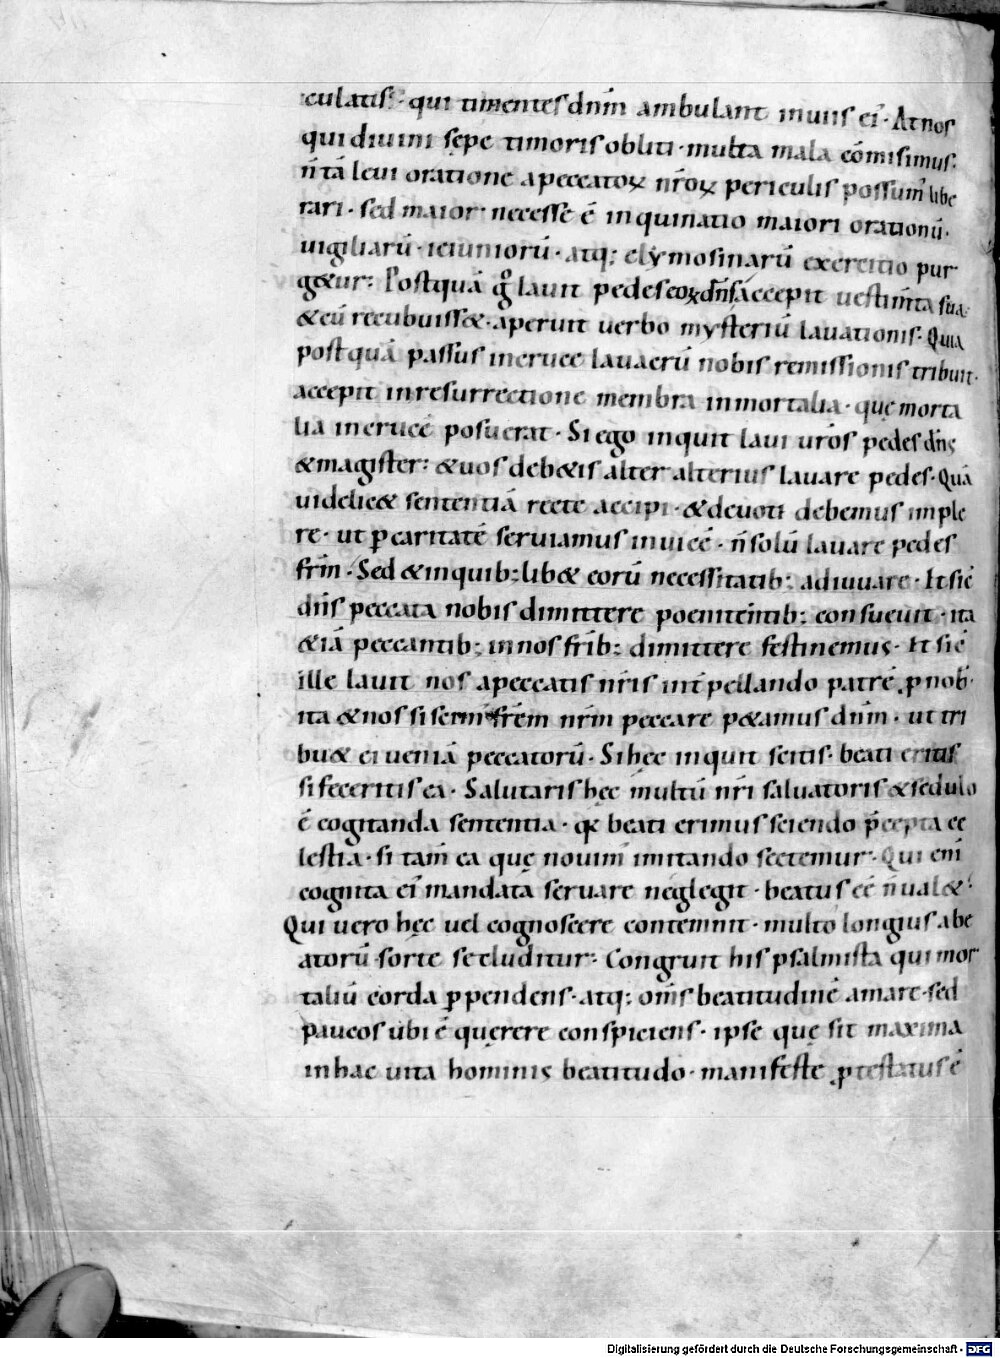 culatis· qui timentes dnm̄ ambulant in uiis ei᷒· At nos
qui diuini sepe timoris obliti· multa mala cōmisimus·
n̄ tā leui oratione a peccatoꝝ nr̄oꝝ periculis possum᷒ libe
rari· sed maior necesse ē inquinatio maiori orationū·
uigiliarū· ieiuniorū· atq; elymosinarū exercitio pur
g&ur; Postquā g̊ lauit pedes eoꝝ dn̄s accepit uestim̄ta sua·
& cū recubuiss&· aperuit uerbo mysteriū lauationis· Quia
postquā passus in cruce lauacrū nobis remissionis tribuit·
accepit in resurrectione membra inmortalia· quę morta
lia in crucē posuerat· Si ego inquit laui ur̄os pedes dn̄s
& magister; & uos deb&is alter alterius lauare pedes· Quā
uidelic& sententiā recte accipi· & deuoti debemus imple
re· ut ꝑ caritatē seruiamus inuicē· n̄ solū lauare pedes
fr̄m· Sed & in quib; lib& eorū necessitatib; adiuuare· Et sic̄
dn̄s peccata nobis dimittere poenitentib; consueuit· ita
& iā peccantib; in nos fr̄ib; dimittere festinemus· Et sic̄
ille lauit nos a peccatis nr̄is int̄pellando patrē ꝓ nob̄
ita & nos si scim᷒ fr̄em nr̄m peccare p&amus dnm̄· ut tri
bu& ei ueniā peccatorū· Si hęc inquit scitis· beati eritis
si feceritis ea· Salutaris hęc multū nr̄i saluatoris & sedulo
ē cogitanda sententia· qꝛ beati erimus sciendo p̄cepta ce
lestia· si tam̄ ea quę nouim᷒ imitando sectemur· Qui eni᷒
cognita ei᷒ mandata seruare neglegit· beatus eē n̄ ual&·
Qui uero hęc uel cognoscere contemnit· multo longius a be
atorū sorte secluditur· Congruit his psalmista qui mor
taliū corda ꝑpendens· atq; om̄s beatitudinē amare· sed
paucos ubi ē quęrere conspiciens· ipse quę sit maxima
in hac uita hominis beatitudo· manifeste ꝓtestatus ē
Digitalisierung gefördert durch die Deutsche Forschungsgemeinschaft - DFG